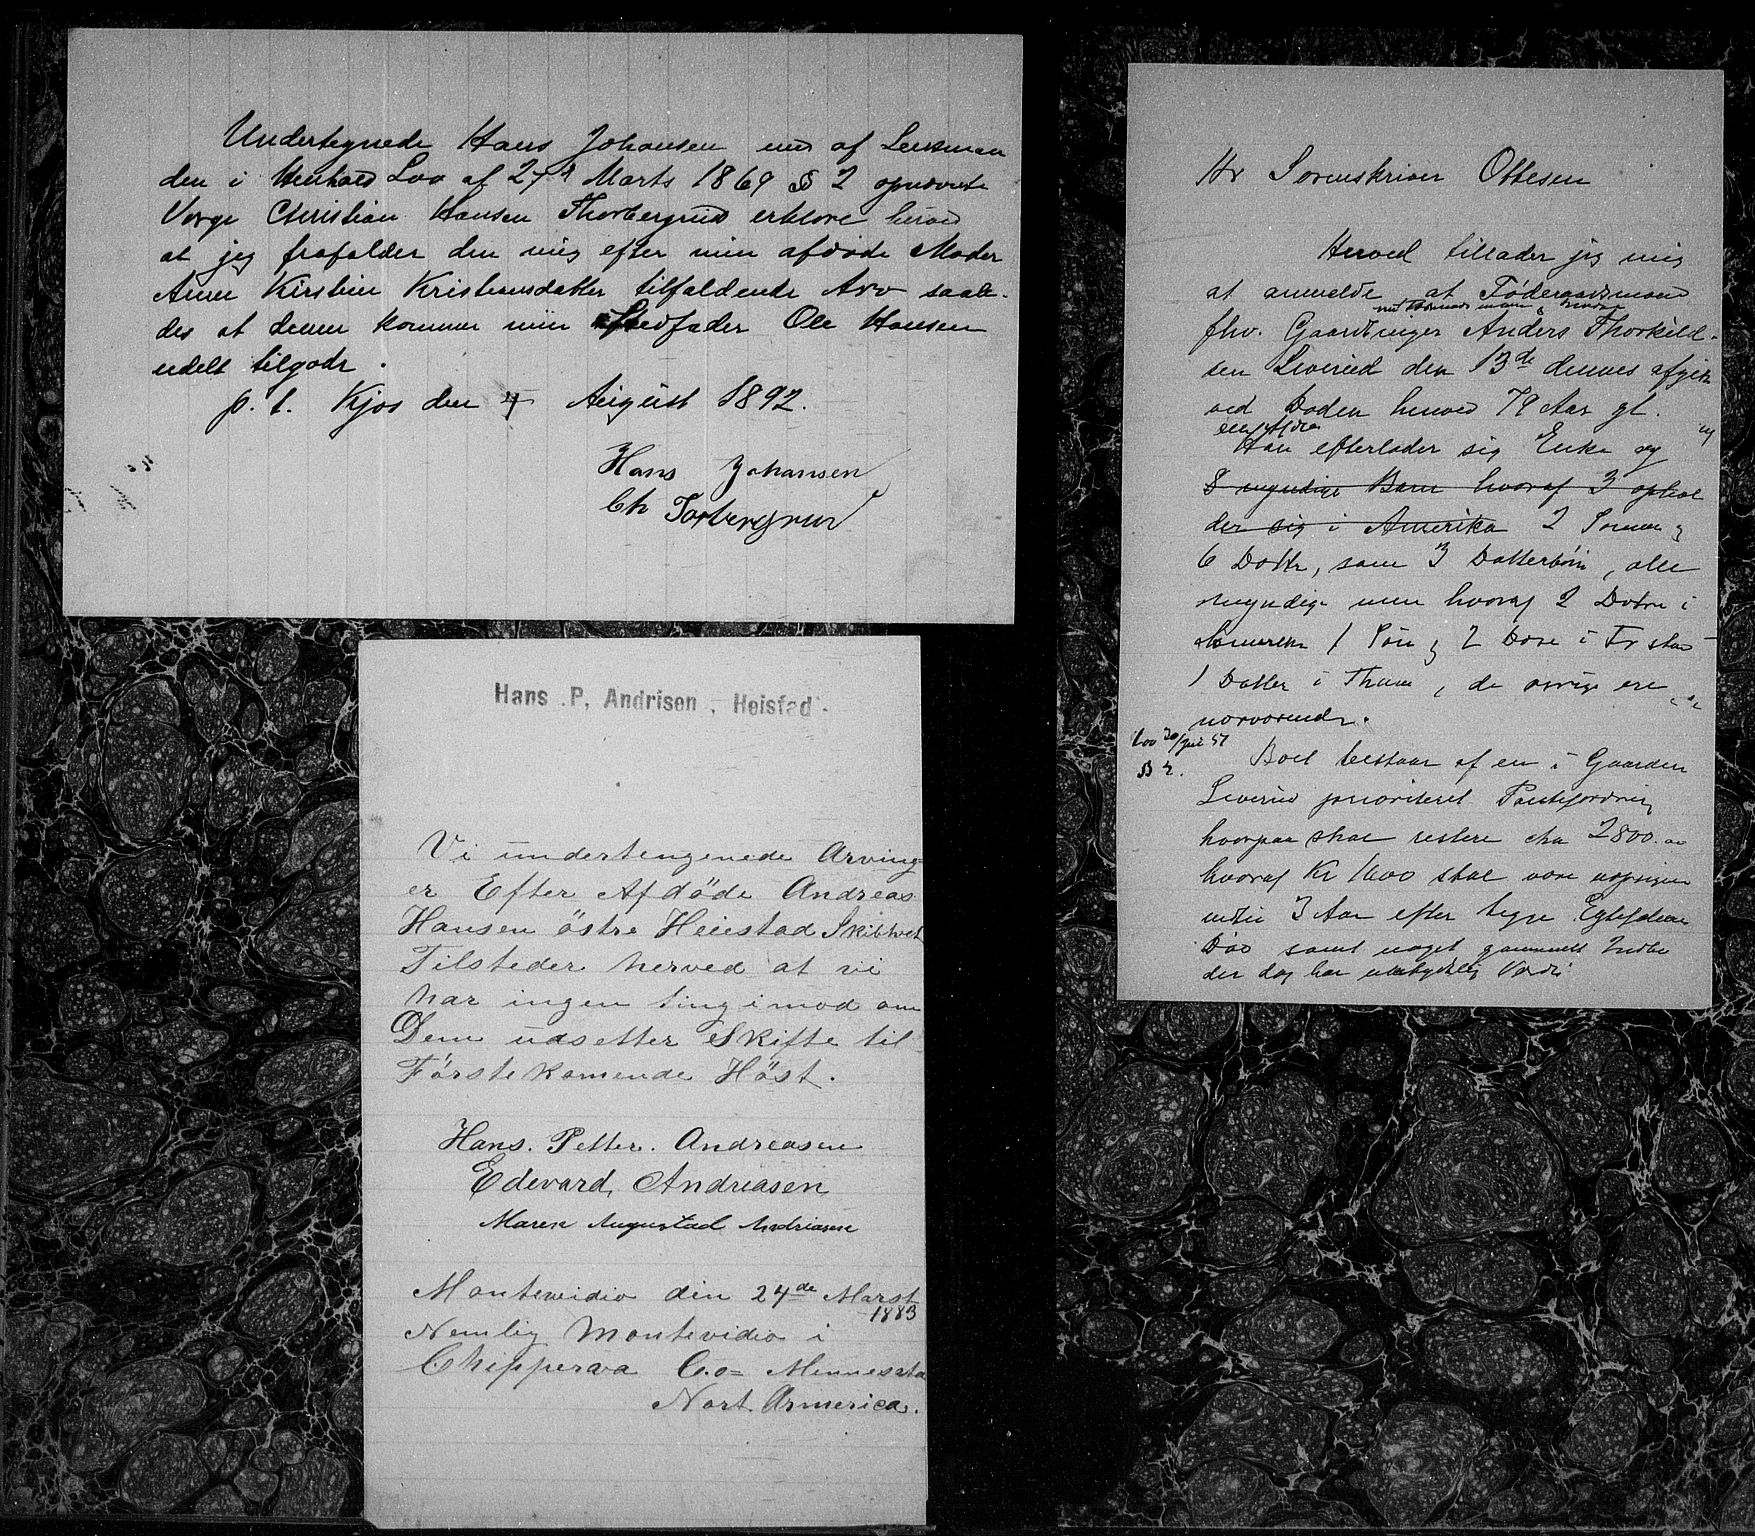 Undertegnede Hans Johansen med af Lensman
den i Henhold Lov af 27de Marts 1869 § 2 opnævnte
Verge Christian Hansen Thorbergrud erklære herved
at jeg frafalder den mig efter min afdøde Moder
Anne Kirstine Kristiansdatter tilfaldende Arv saale-
des at denne kommer min Stedfader Ole Hansen
udelt tilgode.
p. t. Kjos den 4 August 1892.
Hans Johansen
Ch Torbergrud
Hans P. Andrisen, Heistad.
Vi undertengenede Arving
er Efter Afdöde Andreas
Hansen östre Heiestad Skibtvet
Tilsteder herved at vi
har ingen ting imod om
Dem udsetter Skifte til
Förste komende Höst.
Hans. Petter. Andreasen
Edevard, Andreasen
Maren Augustad Andriasen
Montevidio den 24de Marst
1883
Nemlig Montevidio i
Chipperva Co= Minnessta
Nort. Armerica.
Hr Sorenskriver Ottesen
Herved tillader jeg mig
at anmelde at Födera​adsmand
fhv. Gaardbruger Anders Thorkild-
sen Siverud den 13de dennes afgik
ved Döden henved 79 Aar gl.
Han efterlader sig Enke og
8 myndige Børn hvoraf 3 ophol
der sig i Amerika 2 Sønner &
6 Døttr, samt 3 Datterbörn, alle
myndige men hvoraf 2 Døtre i
Amerika 1 Sön & 2 Døtre i Fr stad
1 Datter i Thune, de øvrige ere
nærværende.
Lov 30/Juli 51
§ 2.
Boet bestaar af en i Gaarden
Siverud prioriteret Pantefordring
hvorpaa skal restere cha 2800.00
hvoraf Kr 1600 skal være uopsigelig
indtil 3 Aar efter begge Egtefolkenes
Død samt noget gammelt Indbo
der dog har ubetydelig Værdi